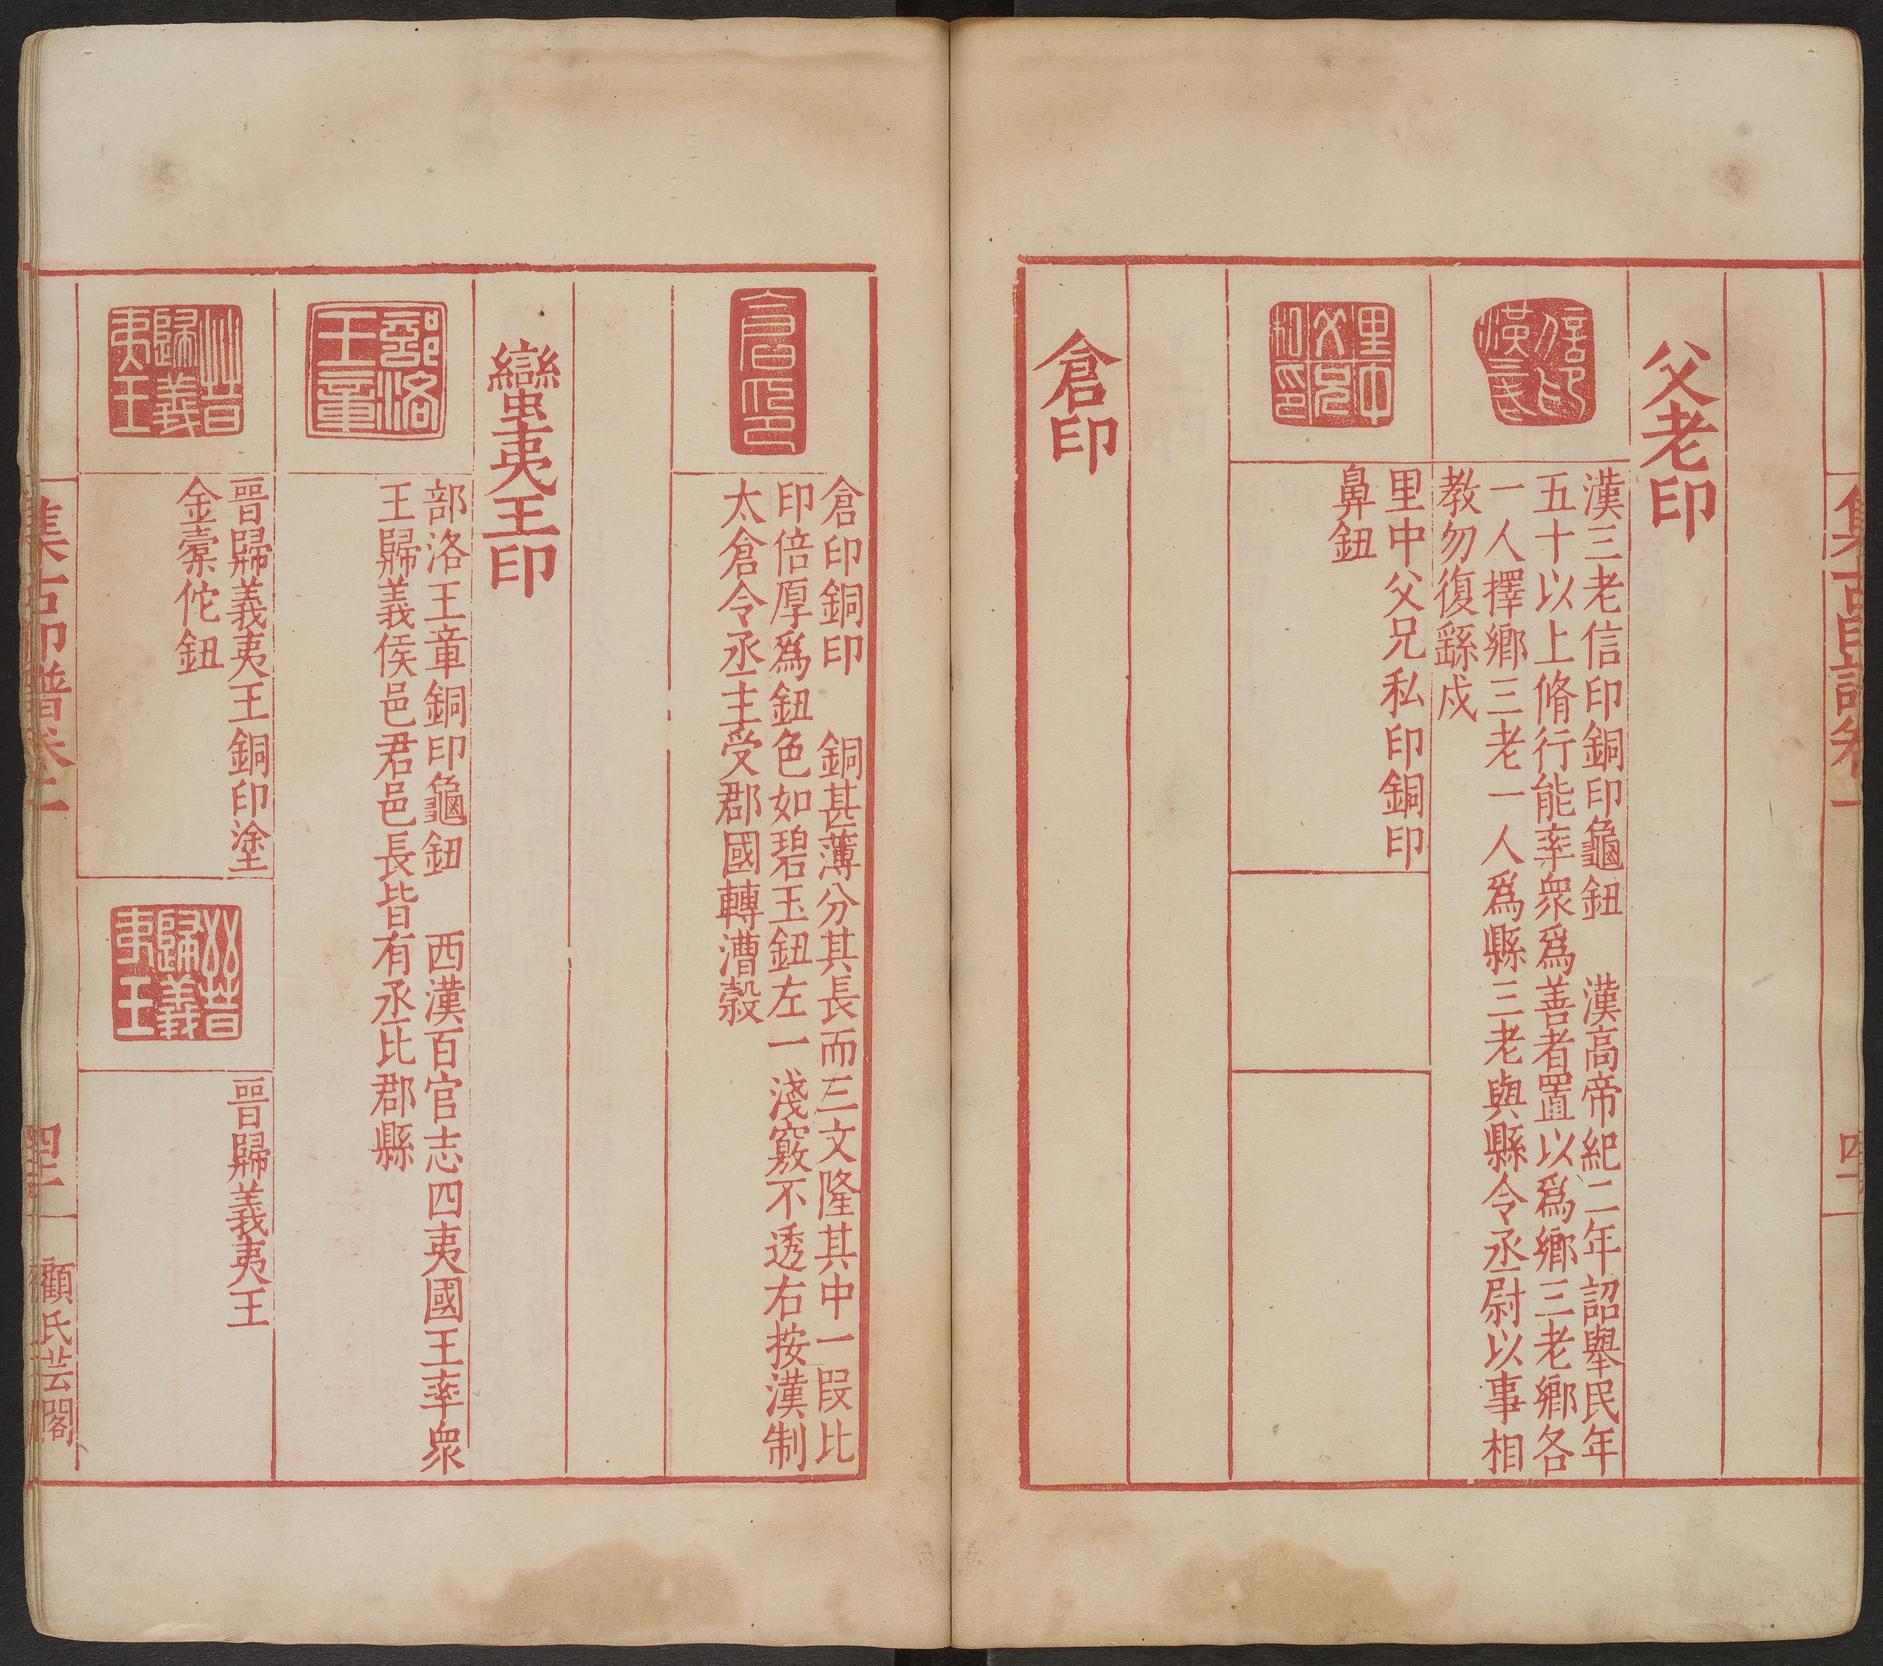 父老印
漢三老信印銅印龜鈕　漢高帝紀二年詔舉民年
五十以上脩行能率衆爲善者置以爲鄉三老鄉各
一人擇鄉三老一人爲縣三老與縣令丞尉以事相
教勿復繇戍
里中父兄私印銅印
鼻鈕
倉印
倉印
倉印銅印　銅甚薄分其長而三文隆其中一段比
印倍厚爲鈕色如碧玉鈕左一淺竅不透右按漢制
太倉令丞主受郡國轉漕穀
蠻夷王印
部洛
王章
部洛王章銅印龜鈕　西漢百官志四夷國王率衆
王歸義侯邑君邑長皆有丞比郡縣
晉
歸義
夷王
晉歸義夷王銅印塗
金橐佗鈕
晉
歸義
夷王
晉歸義夷王
集古印譜卷二
顧氏芸閣